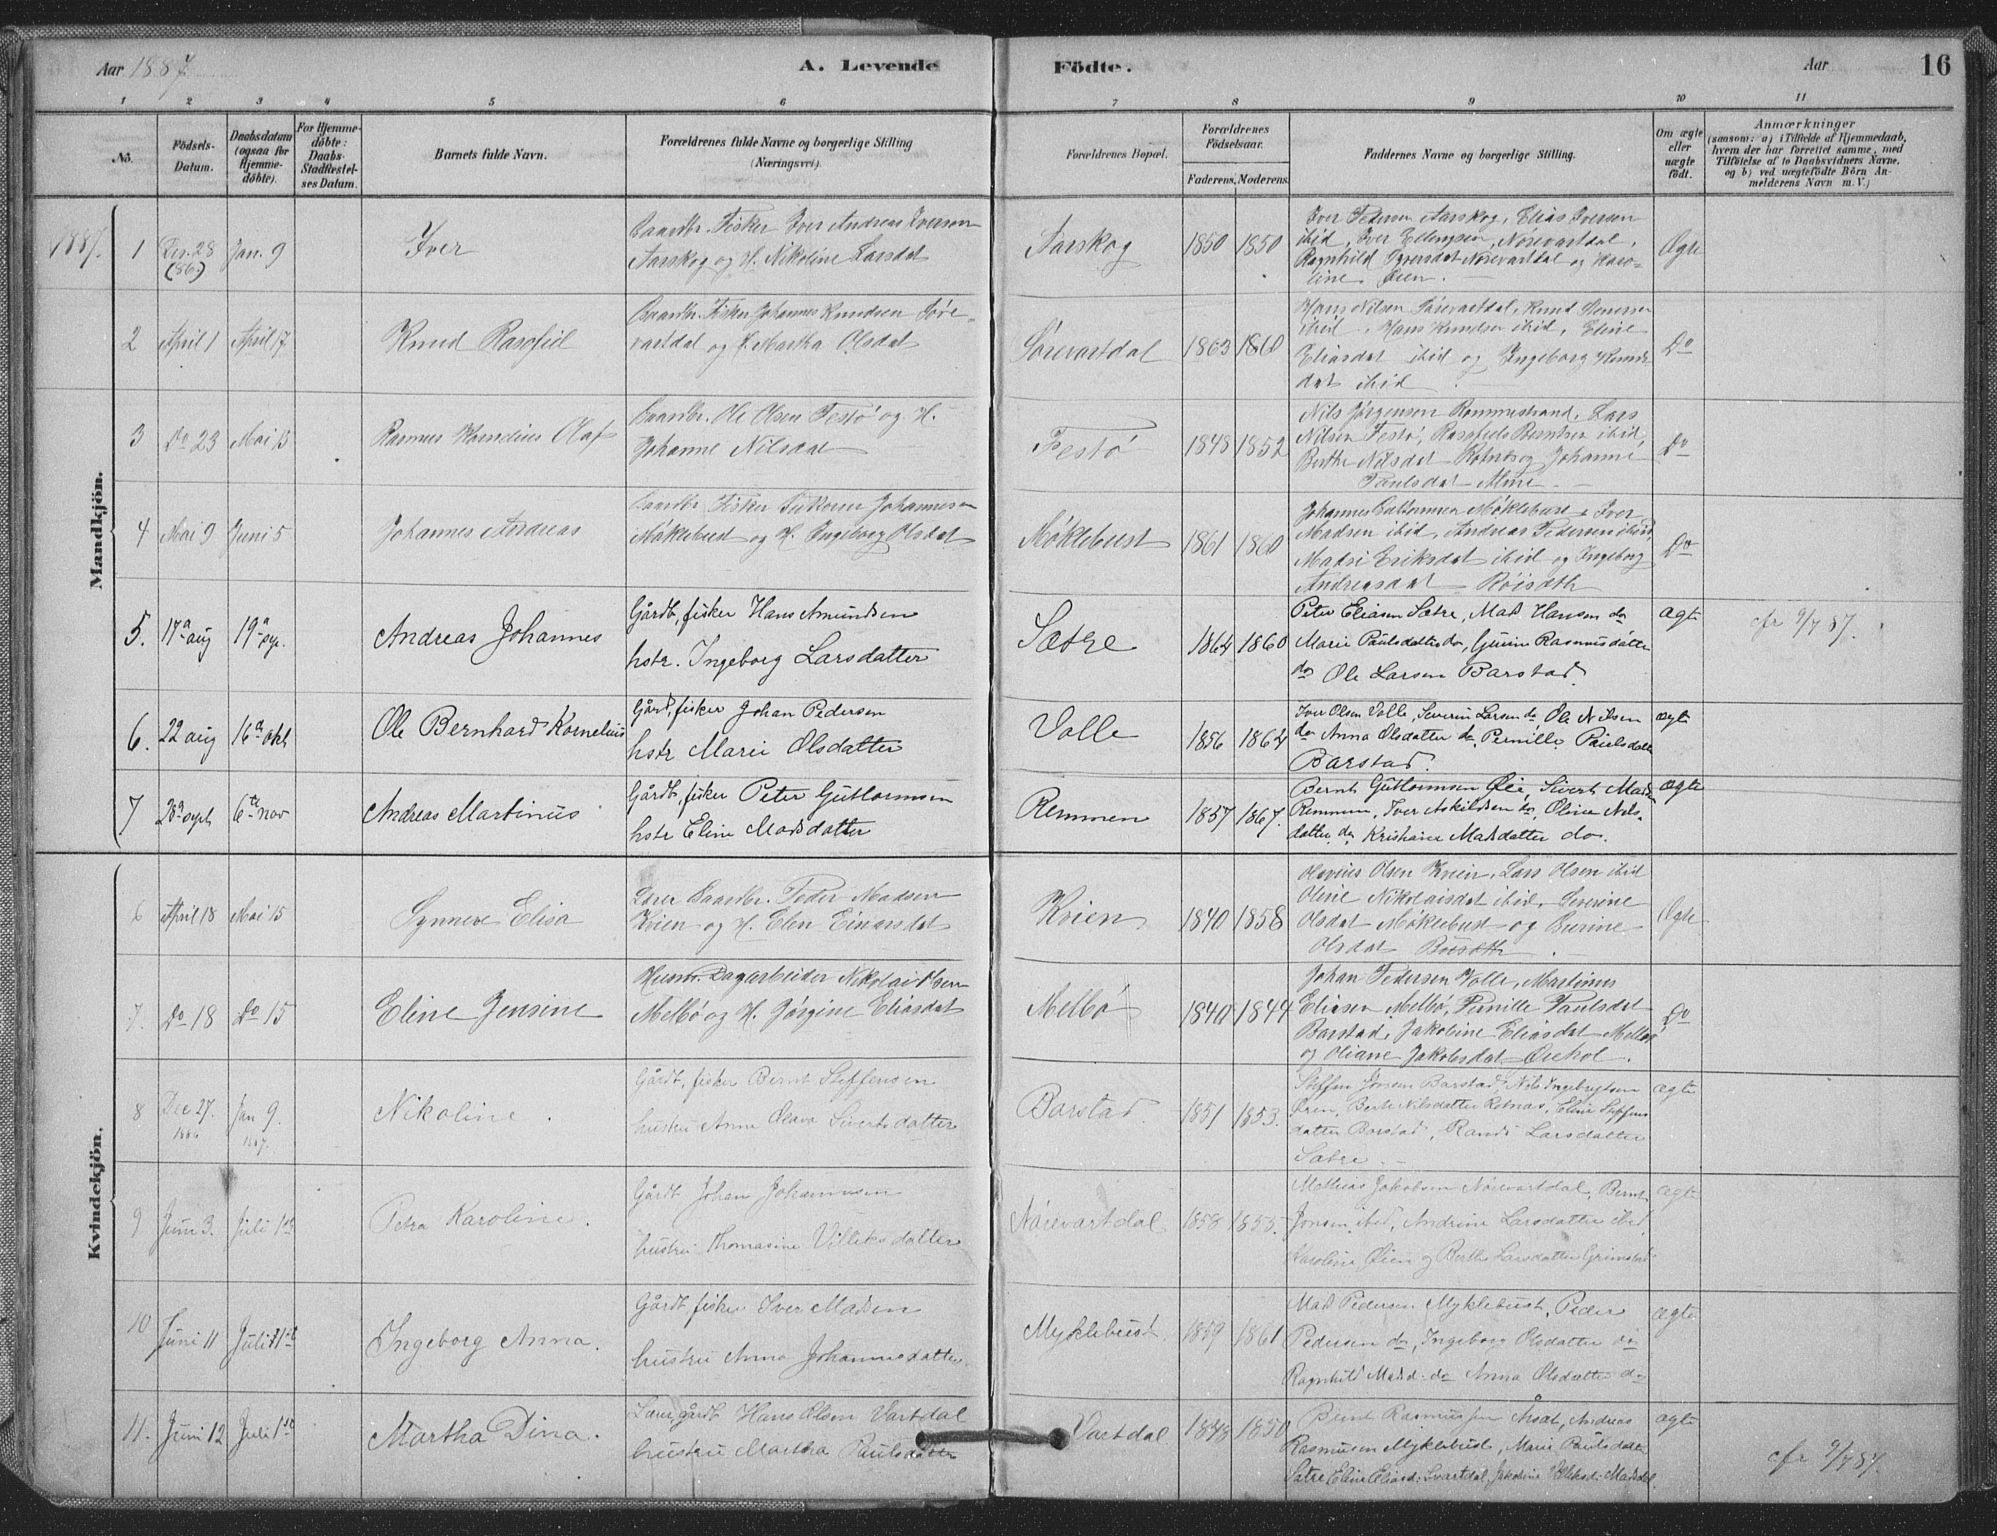 Aar 1887
A. Levende
Födte.
Aar
16
1 2 3 4 5 6 7 8 9 10 11
No.
Födsels-
Datum.
Daabsdatum
(ogsaa for
Hjemme-
döbte).
For Hjemme-
döbte:
Daabs-
Stadfæstel-
ses Datum.
Barnets fulde Navn.
Forældrenes fulde Navne og borgerlige Stilling
(Næringsvei).
Forældrenes Bopæl.
Forældrenes
Födselsaar.
Faderens. Moderens.
Faddernes Navne og borgerlige Stilling.
Om ægte
eller
uægte
födt.
Anmærkninger
(saasom: a) i Tilfælde af Hjemmedaab,
hvem der har forrettet samme, med
Tilföielse af to Daabsvidners Navne,
og b) ved uægtefödte Börn An-
melderens Navn m. V.)
Mandkjön.
1887. 1 Dec. 28
(86)
Jan. 9
Iver
Gaardbr. Fisker Iver Andreas Iversen
Aarskog og H. Nikoline Larsdat
Aarskog
1850 1850
Iver Pedersen Aarskog, Elias Iversen
ibid, Iver Ellingsen, Nørevartdal,
Ragnhild Iversdat Nørevartdal og Karo-
line Øien.
Ægte
2 April 1 April 17
Knud Rasofiel
Gaardbr. Fisker Johannes Knudsen Søre-
vartdal og H. Martha Olsdat
Sørevartdal
1863 1860
Hans Nilsen Sørevartdal, Knud
ibid, Hans Knudsen ibid, Eline
Eliasdat ibid og Ingeborg Knuds-
dat ibid
Do
3 Do 23 Mai 15
Rasmus Kornelius Olaf
Gaardbr. Ole Olsen Festø og H.
Johanne Nilsdat
Festø
1848 1852
Nils Jørgensen Rommestrand, Lars
Nilsen Festø, Rasofiel Berntsen ibid,
Berthe Nilsdat og Johanne
Paulsdat
Do
4 Mai 9 Juni 5
Johannes Andreas
Gaardbr. Fisker Johannesen
Møklebust og H. Ingeborg Olsdat
Møklebust
1861 1860
Johannes Guttormsen Møklebust, Iver
Madsen ibid, Andreas Pedersen ibid,
Madsi Eriksdat ibid og Ingeborg
Andreasdat
Do
5. 17de aug 19de sep.
Andreas Johannes
Gårdb, fisker Hans Amundsen
hstr. Ingeborg Larsdatter
Sætre
1864 1860
Peter Eliasen Sætre, Mads Hansen do
Marie Paulsdatter do, Gurine Rasmusdatter
do Ole Larsen Barstad.
ægte
cfr 9/7 87.
6. 22 aug 16de okt
Ole Bernhard Kornelius
Gård, fisker Johan Pedersen
hstr Marie Olsdatter
Volle
1856 1864
Iver Olsen Volle, Severin Larsen do, Ole Nilsen
do Anna Olsdatter do, Pernille Paulsdatter
Barstad.
ægte
7 28 sept 6te nov
Andreas Martinus
Gårdb, fisker Peter Guttormsen
hstr Eline Madsdatter
Remmen
1857 1867.
Bernt Guttormsen Øie, Sivert Mads.
Remmen, Iver Askildsen do, Oline Nils-
datter do, Kristiane Madsdatter do.
ægte
Kvindekjön.
6 April 18 Mai 15
Synneve Elisa
Lærer Gaardbr. Peder Madsen
Kvien og H. Elen Einarsdat
Kvien
1840 1858
Olsen Kvien, Lars Olsen ibid
Oline Nikolaisdat ibid, Severine
Olsdat Møklebust og
Olsdat
Ægte
7. Do 18 Do 15
Eline Jensine
Husm. Dagarbeider Nikolai Olsen
Melbø og H. Jørgine Eliasdat
Melbø
1840 1844
Johan Pedersen Volle, Martinus
Eliasen Melbø, Pernille Paulsdat
Barstad, Jakobine Eliasdat Melbø
og Oliane Jakobsdat
Do
8 Dec 27.
1886
Jan 9.
1887.
Nikoline.
Gårdb, fisker Bernt Steffensen
hustru Anne Olava Sivertsdatter
Barstad
1851 1853.
Steffen Jonsen Barstad, Nils Ingebrigtsen
Øren, Berte Nilsdatter Rotnas, Eline Steffens-
datter Barstad, Randi Larsdatter
Sætre
ægte
9 Juni 3. Juli 1ste
Petra Karoline.
Gårdb Johan Johannesen
hustru Thomasine Villiksdatter
Nørevartdal
1858 1853.
Mathias Jakobsen Nørevartdal, Bernt
Jonsen ibid, Andrine Larsdatter ibid,
Karoline Øien og Berthe Larsdatter
ægte
10 Juni 11 Juli 1ste
Ingeborg Anna.
Gårdb, fisker Iver Madsen
hustru Anna Johannesdatter
Myklebust.
1859 1861
Mads Pedersen Myklebust, Peder
Pedersen do, Ingeborg Olsdatter do
Ragnhild Madsd. do Anna Olsdatter do
ægte
11. Juni 12 Juli 1ste
Martha Dina.
gårdb Hans Olsen Vartdal
hustru Martha Paulsdatter
Vartdal
1848 1850
Bernt Rasmussen Årset, Andreas
Rasmusen Myklebust, Marie Paulsdatter
Sætre, Eline Eliasd: Svartdal, Jakobine Villiksd:
ægte
cfr 9/7 87.